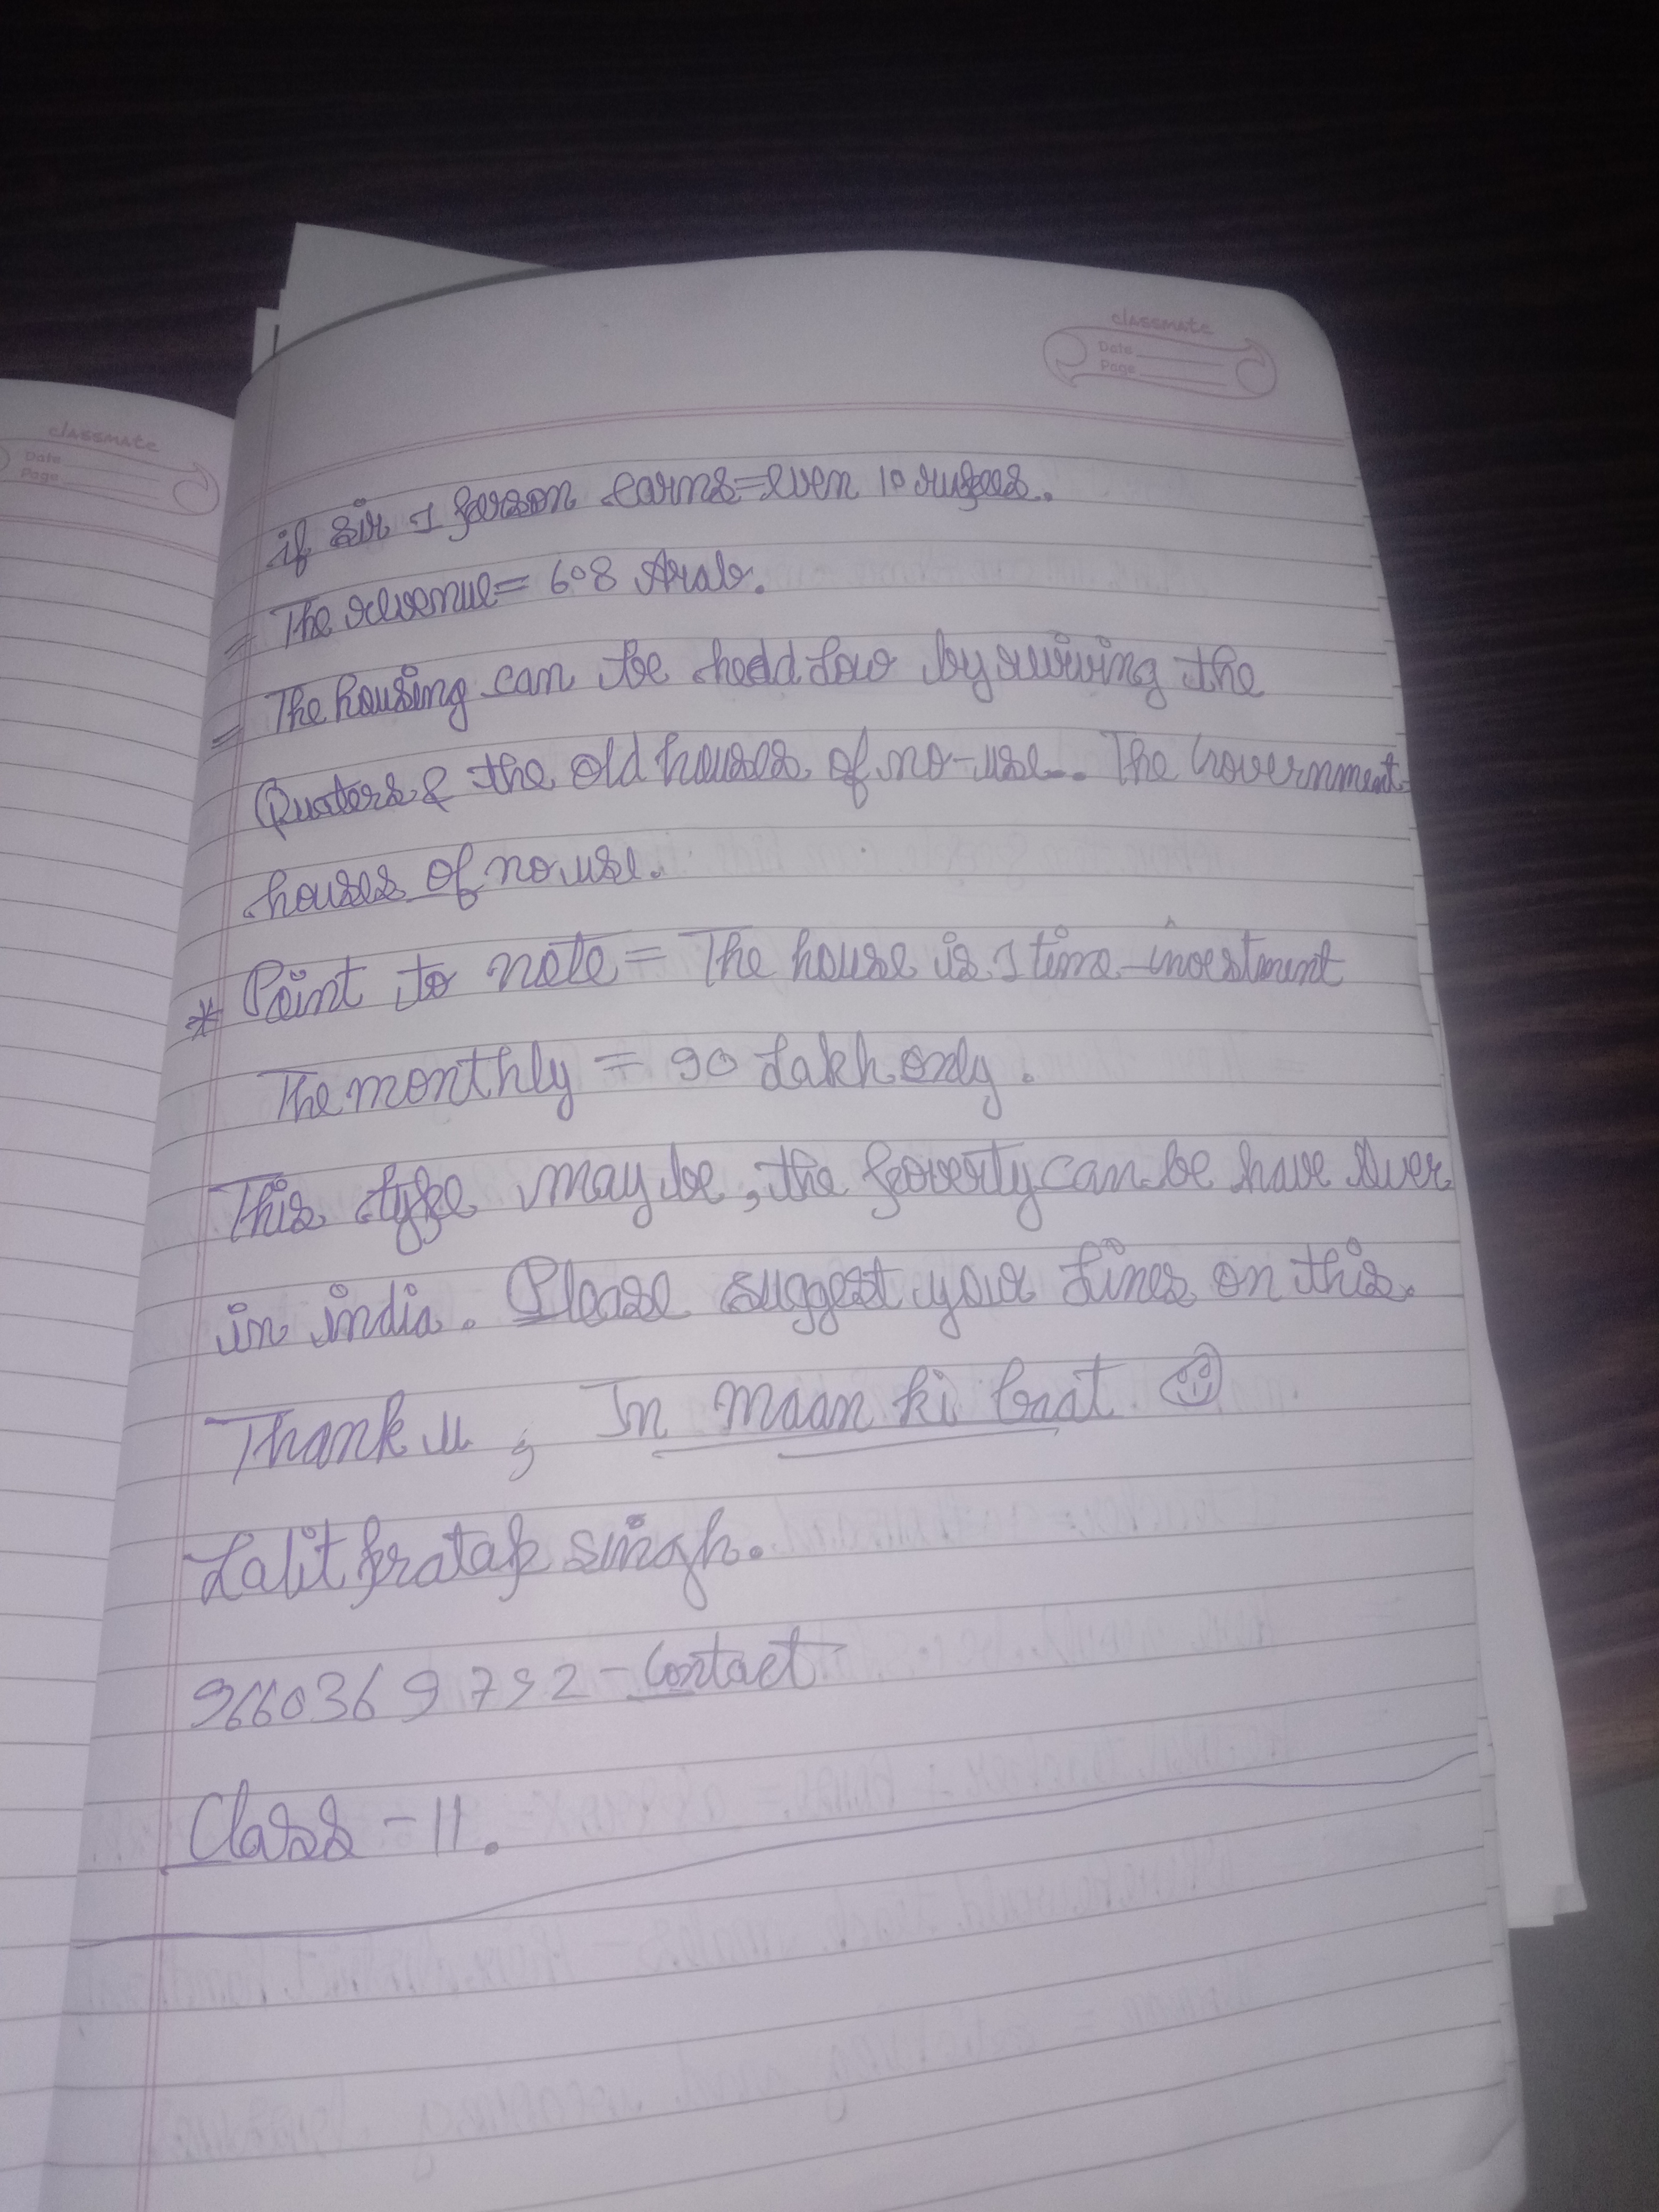 classmate
Date
Page
classmate
Date
Page
if sir 1 person earns=even 10 rupees.
= The revenue= 608 Arab.
= The housing can be hedd low by reviving the
Quaters & the old houses of no-use-. The Government
houses of no use.
* Point to note = The house is 1 time-investment
The monthly = 90 Lakh only.
This type may be, the poverty can be have over
in india. Please suggest your lines on this.
Thank u, In maan ki baat
Lalit pratap singh.
9660369792-Contact
Class-11.